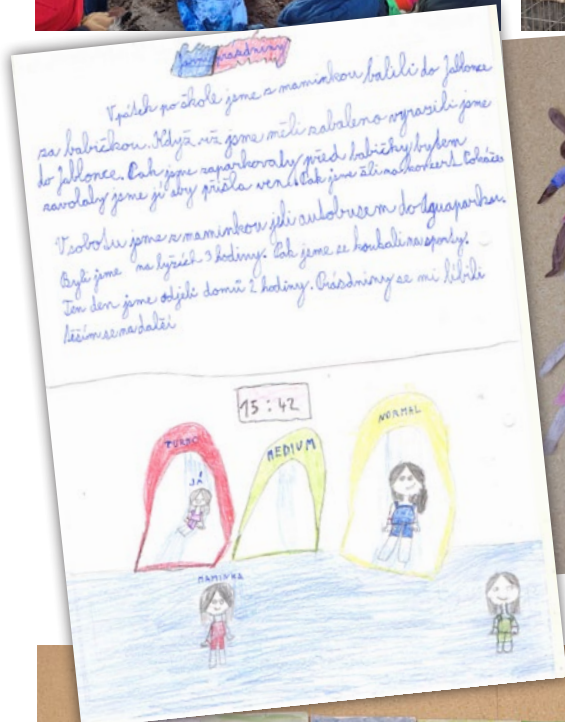 Jarní prázdniny
V pátek po škole jsme s maminkou balili do Jablonce
za babičkou. Když už jsme měli zabaleno vyrazili jsme
do Jablonce. Pak jsme zaparkovaly před babičky bytem
zavolaly jsme jí aby přišla ven. Pak jsme šli na koncert
V sobotu jsme z maminkou jeli autobusem do Aquaparku.
Byli jsme na lyžích 3 hodiny. Pak jeme se koukali na sporty.
Ten den jsme odjeli domů 2 hodiny. Prásdniny se mi líbili
těším se na další
15:42
TURBO
MEDIUM
NORMAL
JÁ
MAMINKA